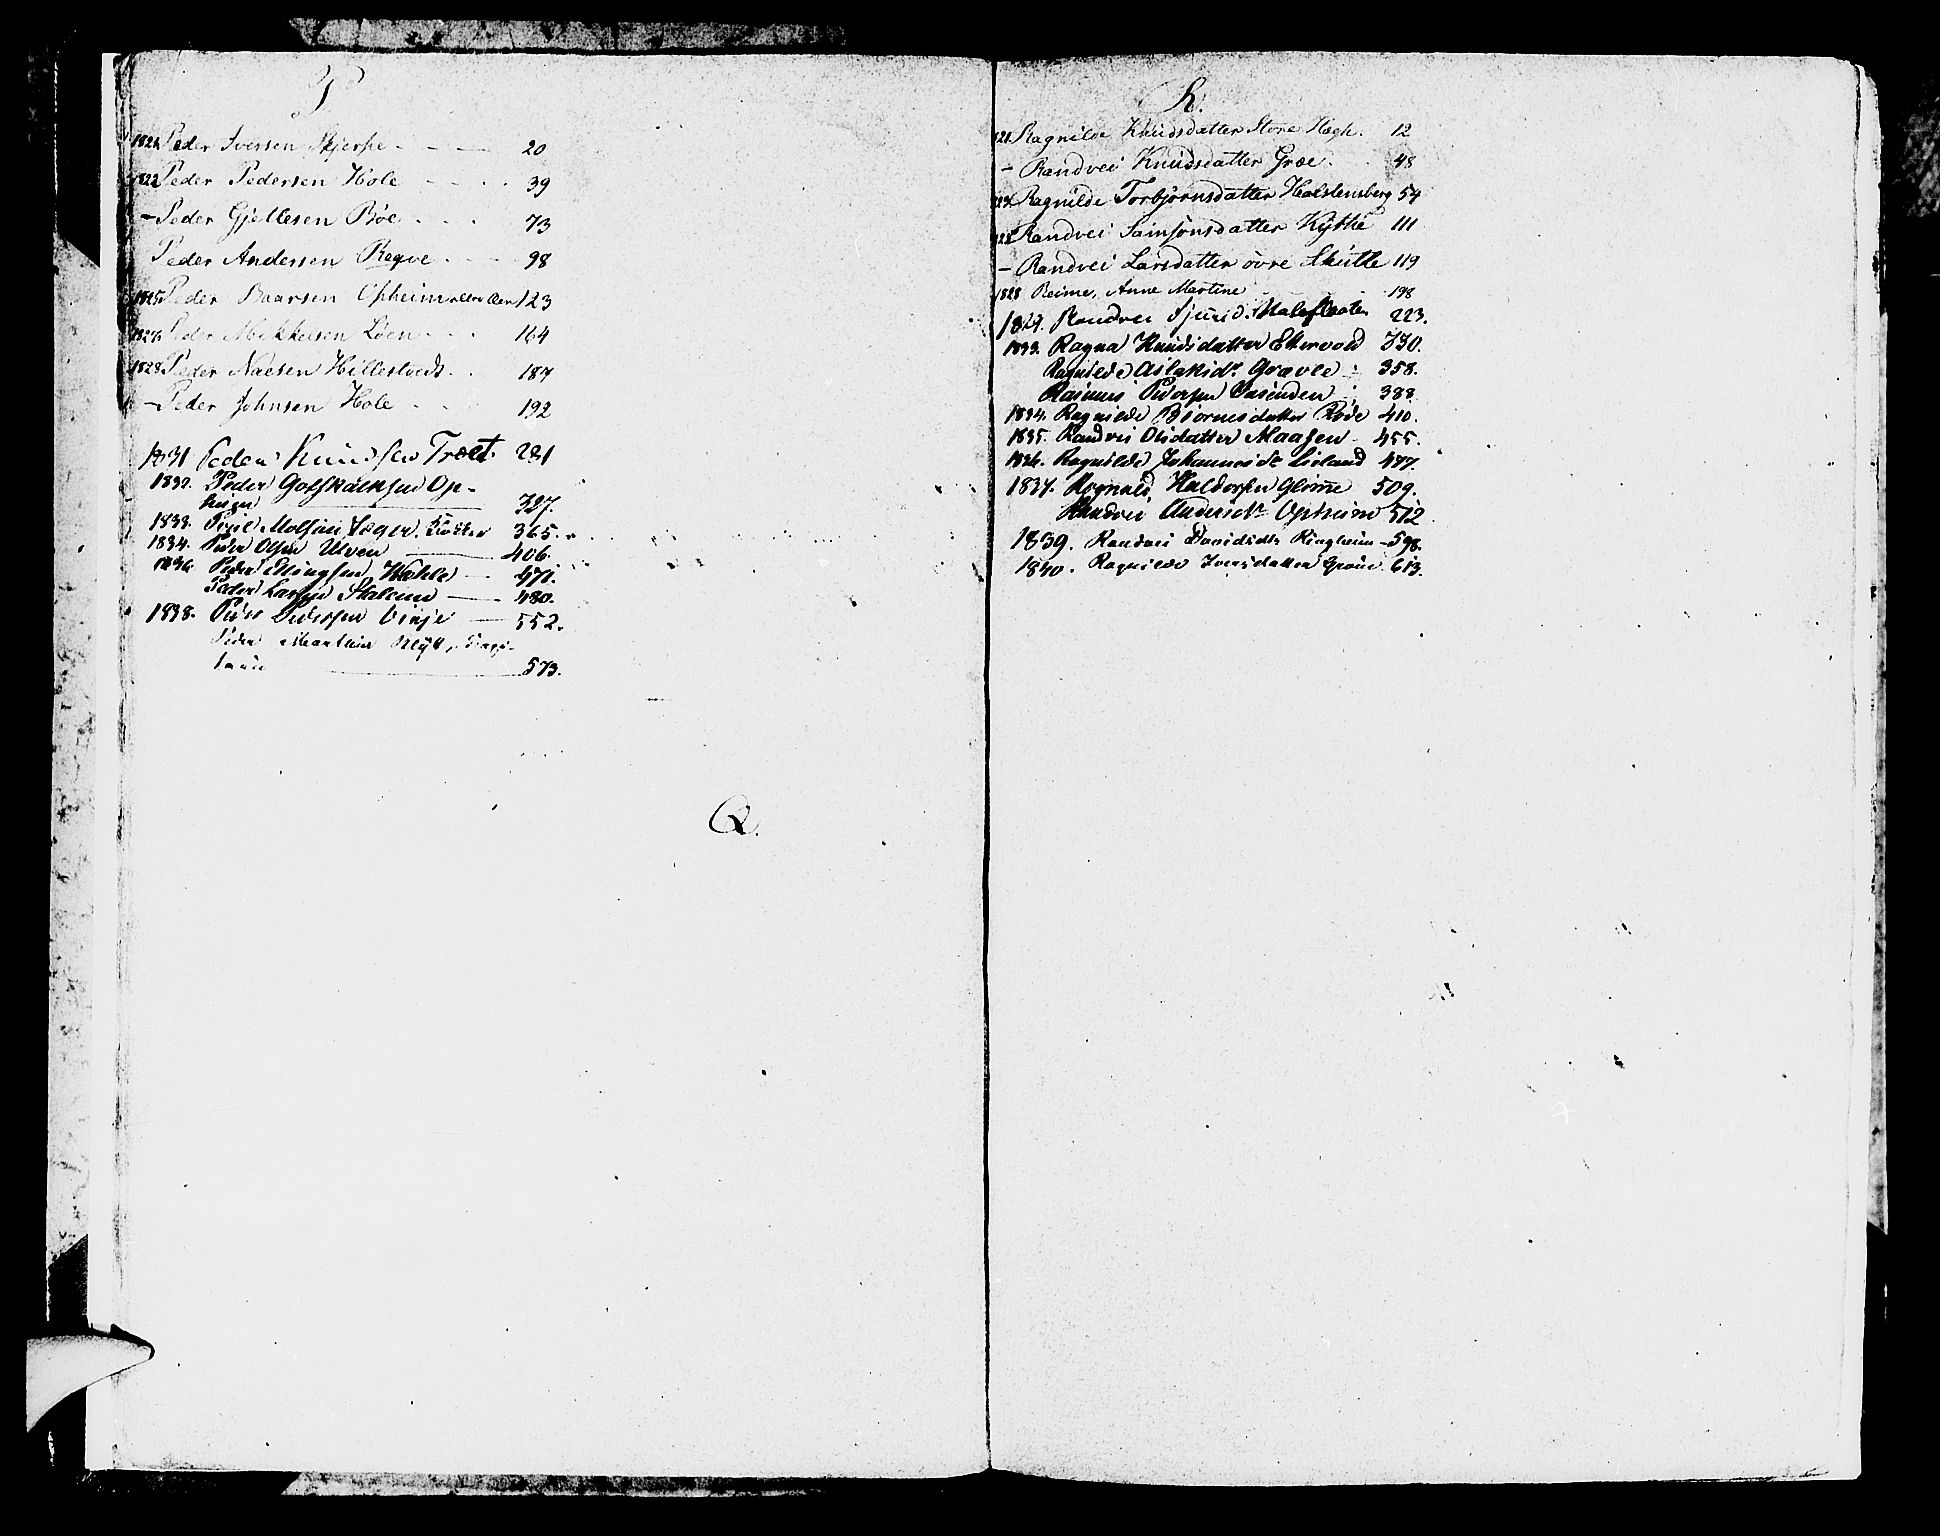 P
Peder Iversen Skjerpe 20
Peder Pedersen Hole 39
- Peder Gjellesen Böe 73
Peder Andersen Reqve 98
1825 Peder Baarsen Opheim 123
Peder Mikkelsen Löen 164
1828 Peder Nielsen Hillestveds 187
- Peder Johnsen Hole 192
1831 Peder Knudsen Træet 281
1832. Peder Gotskalksen Op-
327.
1833. Molsen 365.
1834. Peder Olsen Ulven 406.
1836. Peder Ellingsen 471.
Peder Larsen 480.
1838. Peder Pedersen Vinje 552.
Peder
573.
Q.
R.
Ragnilde Knudsdatter Store Hegh. 12
- Randvei Knudsdatter Græe. 48
Ragnilde Torbjörnsdatter Holstensberg 54
Randvei Samsonsdatter Kythe 111
- Randvei Larsdatter övre Skutle 119
1828 Reime, Anne Martine 198
1829. Randvei 223.
1833. Ragna Knudsdatter 330.
Ragnilde Aslaksdr Grævle 358.
Rasmus Pedersen 388
1834. Ragnilde Biornsdatter Röde 410.
1835. Randvei Olsdatter 455.
1836. Ragnilde Johannesdr Lieland 477.
1837. Rognald Haldorsen Glimme 509.
Randvei Andersdr Opheim 512
1839. Randvei Davidsdtr Ringheim - 598.
1840. Ragnilde Iversdatter 613.